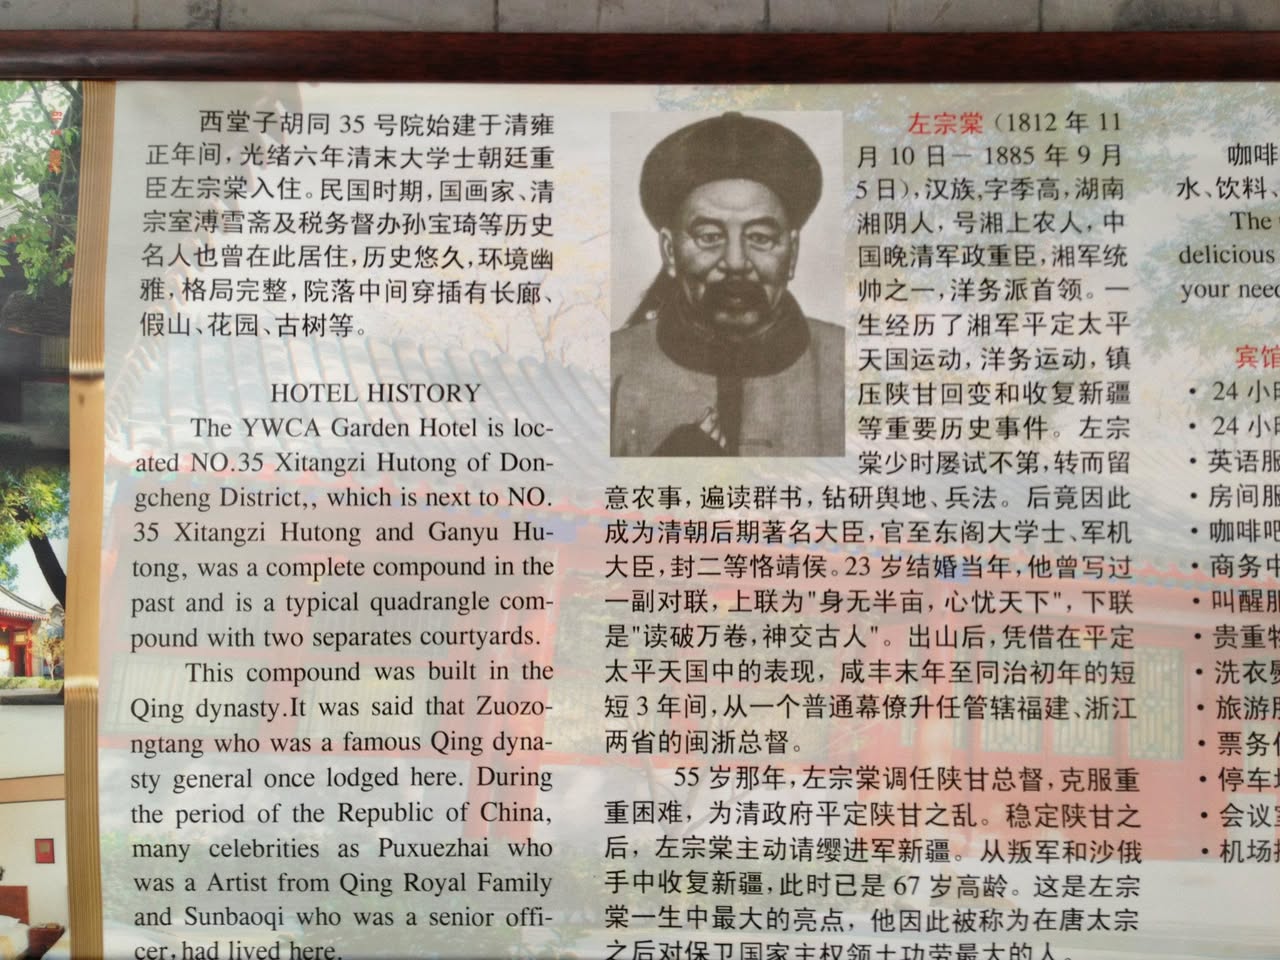 西堂子胡同 35 号院始建于清雍
正年间，光绪六年清末大学士朝廷重
臣左宗棠入住。民国时期，国画家、清
宗室溥雪斋及税务督办孙宝琦等历史
名人也曾在此居住，历史悠久，环境幽
雅，格局完整，院落中间穿插有长廊、
假山、花园、古树等。
HOTEL HISTORY
The YWCA Garden Hotel is loc-
ated NO.35 Xitangzi Hutong of Don-
gcheng District,, which is next to NO.
35 Xitangzi Hutong and Ganyu Hu-
tong, was a complete compound in the
past and is a typical quadrangle com-
pound with two separates courtyards.
This compound was built in the
Qing dynasty.It was said that Zuozo-
ngtang who was a famous Qing dyna-
sty general once lodged here. During
the period of the Republic of China,
many celebrities as Puxuezhai who
was a Artist from Qing Royal Family
and Sunbaoqi who was a senior offi-
cer, had lived here.
左宗棠（1812 年 11
月 10 日－ 1885 年 9 月
5 日），汉族，字季高，湖南
湘阴人，号湘上农人，中
国晚清军政重臣，湘军统
帅之一，洋务派首领。一
生经历了湘军平定太平
天国运动，洋务运动，镇
压陕甘回变和收复新疆
等重要历史事件。左宗
棠少时屡试不第，转而留
意农事，遍读群书，钻研舆地、兵法。后竟因此
成为清朝后期著名大臣，官至东阁大学士、军机
大臣，封二等恪靖侯。23 岁结婚当年，他曾写过
一副对联，上联为"身无半亩，心忧天下"，下联
是"读破万卷，神交古人"。出山后，凭借在平定
太平天国中的表现，咸丰末年至同治初年的短
短 3 年间，从一个普通幕僚升任管辖福建、浙江
两省的闽浙总督。
55 岁那年，左宗棠调任陕甘总督，克服重
重困难，为清政府平定陕甘之乱。稳定陕甘之
后，左宗棠主动请缨进军新疆。从叛军和沙俄
手中收复新疆，此时已是 67 岁高龄。这是左宗
棠一生中最大的亮点，他因此被称为在唐太宗
之后对保卫国家主权领土功劳最大的人。
咖啡
水、饮料、
The
delicious
your need
宾馆
· 24 小时
· 24 小时
· 英语服
· 房间服
· 咖啡吧
· 商务中
· 叫醒服
· 贵重物
· 洗衣熨
· 旅游服
· 票务
· 停车场
· 会议室
· 机场接